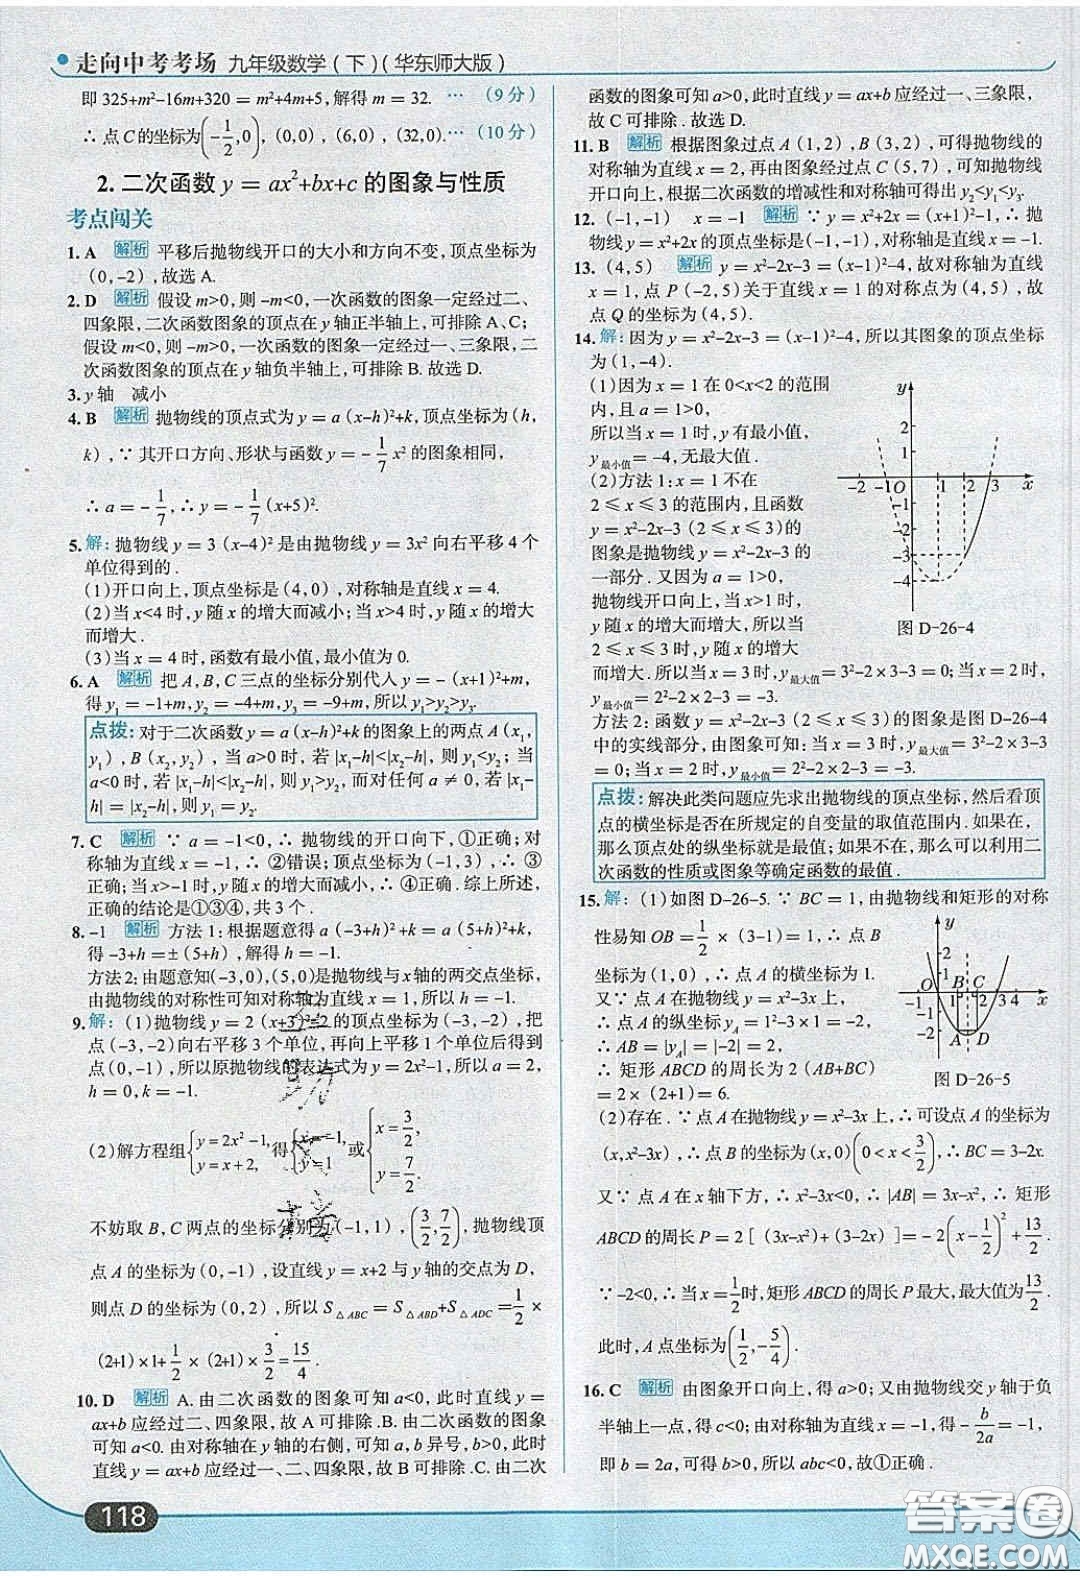 走向中考考场 九年级数学(下)(华东师大版)
即 325+m²-16m+320 = m²+4m+5, 解得 m = 32. … (9分)
∴ 点 C 的坐标为(-1/2,0), (0,0), (6,0), (32,0).… (10分)
2. 二次函数 y = ax²+bx+c 的图象与性质
考点闯关
1. A 解析 平移后抛物线开口的大小和方向不变, 顶点坐标为
(0,-2), 故选 A.
2. D 解析 假设 m>0, 则 -m<0, 一次函数的图象一定经过二、
四象限, 二次函数图象的顶点在 y 轴正半轴上, 可排除 A、C;
假设 m<0, 则 -m>0, 一次函数的图象一定经过一、三象限, 二
次函数图象的顶点在 y 轴负半轴上, 可排除 B. 故选 D.
3. y 轴 减小
4. B 解析 抛物线的顶点式为 y = a (x-h)²+k, 顶点坐标为 (h,
k), ∵ 其开口方向、形状与函数 y = -1/7 x² 的图象相同,
∴ a = -1/7, ∴ y = -1/7 (x+5)².
5. 解: 抛物线 y = 3 (x-4)² 是由抛物线 y = 3x² 向右平移 4 个
单位得到的.
(1)开口向上, 顶点坐标是 (4,0), 对称轴是直线 x = 4.
(2)当 x<4 时, y 随 x 的增大而减小; 当 x>4 时, y 随 x 的增大
而增大.
(3)当 x = 4 时, 函数有最小值, 最小值为 0.
6. A 解析 把 A, B, C 三点的坐标分别代入 y = - (x+1)²+m,
得 y₁ = -1+m, y₂ = -4+m, y₃ = -9+m, 所以 y₁>y₂>y₃.
点拨: 对于二次函数 y = a (x-h)²+k 的图象上的两点 A (x₁,
y₁), B (x₂,y₂), 当 a>0 时, 若 |x₁-h|<|x₂-h|, 则 y₁<y₂; 当
a<0 时, 若 |x₁-h|<|x₂-h|, 则 y₁>y₂, 而对任何 a ≠ 0, 若 |x₁-
h| = |x₂-h|, 则 y₁ = y₂.
7. C 解析 ∵ a = -1<0, ∴ 抛物线的开口向下, ①正确; 对
称轴为直线 x = -1, ∴ ②错误; 顶点坐标为 (-1,3), ∴ ③
正确; 当 x>-1 时, y 随 x 的增大而减小, ∴ ④正确. 综上所述,
正确的结论是①③④, 共 3 个.
8. -1 解析 方法 1: 根据题意得 a (-3+h)²+k = a (5+h)²+k,
得 -3+h = ± (5+h), 解得 h = -1.
方法 2: 由题意知(-3,0), (5,0)是抛物线与 x 轴的两交点坐标,
由抛物线的对称性可知对称轴为直线 x = 1, 所以 h = -1.
9. 解: (1)抛物线 y = 2 (x+3)²-2 的顶点坐标为 (-3,-2), 把
点(-3,-2)向右平移 3 个单位, 再向上平移 1 个单位后得到
点 (0,-1), 所以原抛物线的表达式为 y = 2x²-1, 所以 a = 2,
h = 0, k = -1.
(2)解方程组{y = 2x²-1, y = x+2, 得{x = -1, y = 1 或{x = 3/2, y = 7/2.
不妨取 B, C 两点的坐标分别为 (-1,1), (3/2,7/2), 抛物线顶
点 A 的坐标为 (0,-1), 设直线 y = x+2 与 y 轴的交点为 D,
则点 D 的坐标为 (0,2), 所以 S△ABC = S△ABD+S△ADC = 1/2 ×
(2+1)×1+1/2×(2+1)×3/2 = 15/4.
10. D 解析 A. 由二次函数的图象可知 a<0, 此时直线 y =
ax+b 应经过二、四象限, 故 A 可排除. B. 由二次函数的图象
可知 a<0. 由对称轴在 y 轴的右侧, 可知 a, b 异号, b>0, 此时
直线 y = ax+b 应经过一、二、四象限, 故 B 可排除. C. 由二次
118
函数的图象可知 a>0, 此时直线 y = ax+b 应经过一、三象限,
故 C 可排除. 故选 D.
11. B 解析 根据图象过点 A (1,2), B (3,2), 可得抛物线的
对称轴为直线 x = 2, 再由图象经过点 C (5,7), 可知抛物线
开口向上, 根据二次函数的增减性和对称轴可得出 y₂<y₁<y₃.
12. (-1,-1) x = -1 解析 ∵ y = x²+2x = (x+1)²-1, ∴ 抛
物线 y = x²+2x 的顶点坐标是 (-1,-1), 对称轴是直线 x = -1.
13. (4,5) 解析 y = x²-2x-3 = (x-1)²-4, 故对称轴为直线
x = 1, 点 P (-2,5)关于直线 x = 1 的对称点为 (4,5), 故
点 Q 的坐标为 (4,5).
14. 解: 因为 y = x²-2x-3 = (x-1)²-4, 所以其图象的顶点坐标
为 (1,-4).
(1)因为 x = 1 在 0<x<2 的范围
内, 且 a = 1>0,
所以当 x = 1 时, y 有最小值,
y最小值 = -4, 无最大值.
(2)方法 1: x = 1 不在
2 ≤ x ≤ 3 的范围内, 且函数
y = x²-2x-3 (2 ≤ x ≤ 3)的
图象是抛物线 y = x²-2x-3 的
一部分. 又因为 a = 1>0,
抛物线开口向上, 当 x>1 时,
y 随 x 的增大而增大, 所以当
2 ≤ x ≤ 3 时, y 随 x 的增大
y
2
1
-2 -1 O 1 2 3 x
-1
-2
-3
-4
图 D-26-4
而增大. 所以当 x = 3 时, y最大值 = 3²-2×3-3 = 0; 当 x = 2
时, y最小值 = 2²-2×2-3 = -3.
方法 2: 函数 y = x²-2x-3 (2 ≤ x ≤ 3)的图象是图 D-26-4
中的实线部分, 由图象可知: 当 x = 3 时, y最大值 = 3²-2×3-3
= 0; 当 x = 2 时, y最小值 = 2²-2×2-3 = -3.
点拨: 解决此类问题应先求出抛物线的顶点坐标, 然后看顶
点的横坐标是否在所规定的自变量的取值范围内. 如果在,
那么顶点处的纵坐标就是最值; 如果不在, 那么可以利用二
次函数的性质或图象等确定函数的最值.
15. 解: (1)如图 D-26-5. ∵ BC = 1, 由抛物线和矩形的对称
性易知 OB = 1/2 × (3-1) = 1, ∴ 点 B
坐标为 (1,0), ∴ 点 A 的横坐标为 1.
又∵ 点 A 在抛物线 y = x²-3x 上,
∴ 点 A 的纵坐标 yA = 1²-3×1 = -2,
∴ AB = |yA| = |-2| = 2,
∴ 矩形 ABCD 的周长为 2 (AB+BC)
= 2 × (2+1) = 6.
y
O B C
-1 1 2 3 4 x
-1
-2
A D
图 D-26-5
(2)存在. ∵ 点 A 在抛物线 y = x²-3x 上, ∴ 可设点 A 的坐标为
(x,x²-3x), ∴ 点 B 的坐标为 (x,0)(0<x<3/2), ∴ BC = 3-2x.
又∵ 点 A 在 x 轴下方, ∴ x²-3x<0, ∴ |AB| = 3x-x², ∴ 矩形
ABCD 的周长 P = 2 [(3x-x²)+(3-2x)] = -2(x-1/2)²+13/2.
∵ -2<0, ∴ 当 x = 1/2 时, 矩形 ABCD 的周长 P 最大, 最大值为 13/2.
此时, A 点坐标为 (1/2,-5/4).
16. C 解析 由图象开口向上, 得 a>0; 又由抛物线交 y 轴于负
半轴上一点, 得 c<0; 由对称轴为直线 x = -1, 得 -b/2a = -1,
即 b = 2a, 得 b>0, 所以 abc<0, 故①正确.
答案圈
MXQE.COM